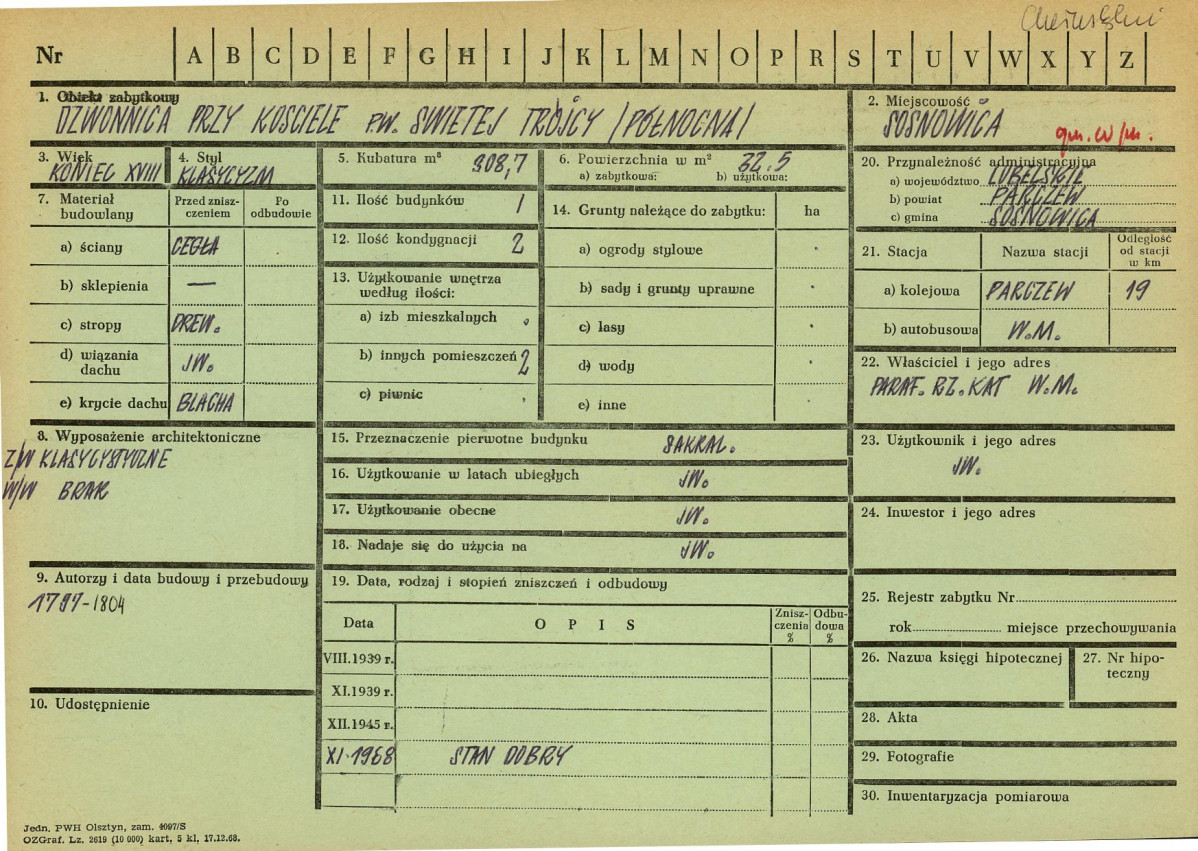 Nr A B C D E F G H I J K L M N O P R S T U V W X Y Z
1. Obiekt zabytkowy
DZWONNICA PRZY KOSCIELE P.W. SWIETEJ TRÓJCY /PÓŁNOCNA/
2. Miejscowość
SOSNOWICA
gm. w/m.
3. Wiek
KONIEC XVIII
4. Styl
KLASYCYZM
5. Kubatura m³ 308,7
6. Powierzchnia w m² 32.5
a) zabytkowa: b) użytkowa:
7. Materiał budowlany
Przed zniszczeniem
Po odbudowie
a) ściany CEGŁA
b) sklepienia —
c) stropy DREW.
d) wiązania dachu JW.
e) krycie dachu BLACHA
8. Wyposażenie architektoniczne
Z/W KLASYCYSTYCZNE
W/W BRAK
9. Autorzy i data budowy i przebudowy
1797-1804
10. Udostępnienie
11. Ilość budynków 1
12. Ilość kondygnacji 2
13. Użytkowanie wnętrza
według ilości:
a) izb mieszkalnych
b) innych pomieszczeń 2
c) piwnic
14. Grunty należące do zabytku: ha
a) ogrody stylowe
b) sady i grunty uprawne
c) lasy
d) wody
e) inne
15. Przeznaczenie pierwotne budynku SAKRAL.
16. Użytkowanie w latach ubiegłych JW.
17. Użytkowanie obecne JW.
18. Nadaje się do użycia na JW.
19. Data, rodzaj i stopień zniszczeń i odbudowy
Data OPIS Zniszczenia % Odbudowa %
VIII.1939 r.
XI.1939 r.
XII.1945 r.
XI.1968 STAN DOBRY
20. Przynależność administracyjna
a) województwo LUBELSKIE
b) powiat PARCZEW
c) gmina SOSNOWICA
21. Stacja Nazwa stacji Odległość od stacji w km
a) kolejowa PARCZEW 19
b) autobusowa W.M.
22. Właściciel i jego adres
PARAF. RZ. KAT W.M.
23. Użytkownik i jego adres
JW.
24. Inwestor i jego adres
25. Rejestr zabytku Nr
rok miejsce przechowywania
26. Nazwa księgi hipotecznej
27. Nr hipoteczny
28. Akta
29. Fotografie
30. Inwentaryzacja pomiarowa
Jedn. PWH Olsztyn, zam. 4097/S
OZGraf. Lz. 2619 (10 000) kart, 5 kl, 17.12.68.